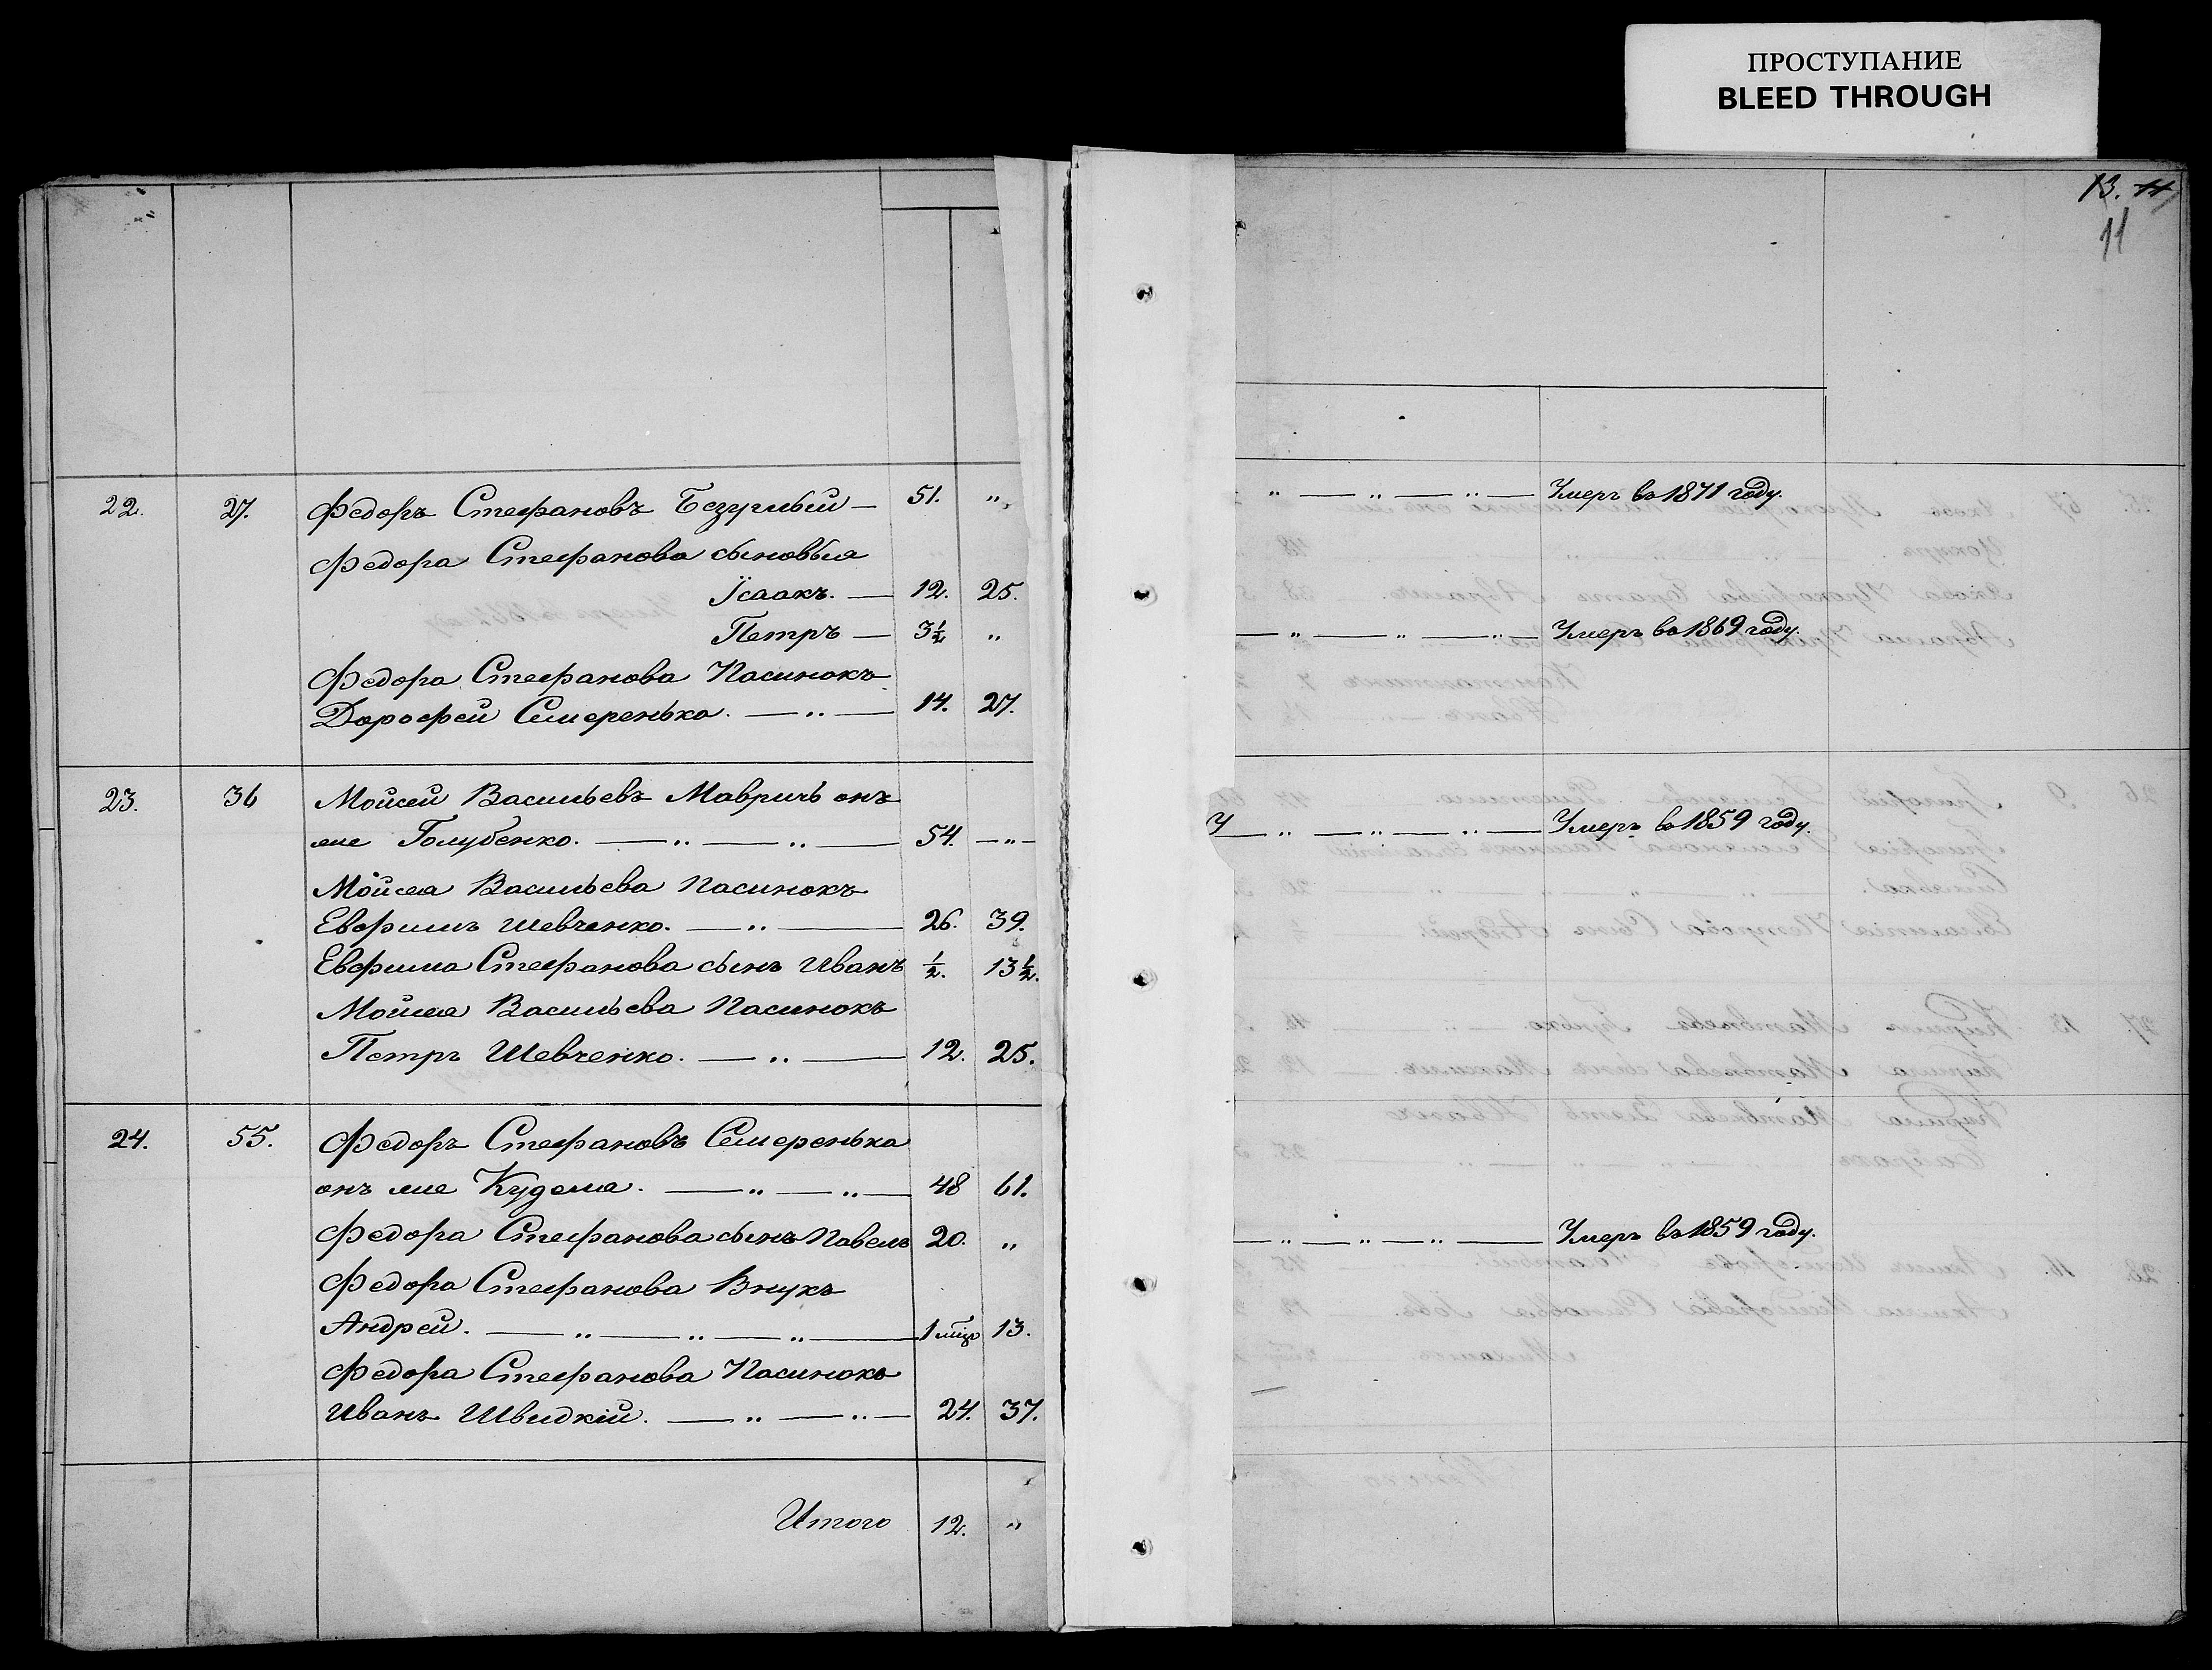 ПРОСТУПАНИЕ
BLEED THROUGH
13. 11
22. 27. Федоръ Стефановъ Безумный — 51. „ — „ — „ — „ — Умеръ въ 1871 году.
Федора Стефанова сыновья
Ісаакъ. — 12. 25.
Петръ — 3½ „ — „ — „ — „ — Умеръ въ 1869 году.
Федора Стефанова Пасинокъ
Дорофей Семеренька. — „ — 14. 27.
23. 36 Мойсей Васильевъ Мавричь онъ
же Голубенко. — „ — „ — 54. — „ — — „ — „ — „ — Умеръ въ 1859 году.
Мойсея Васильева пасинокъ
Евфимъ Шевченко. — „ — 26. 39.
Евфима Стефанова сынъ Иванъ ½. 13½.
Мойсея Васильева Пасинокъ
Петръ Шевченко. — „ — 12. 25.
24. 55. Федоръ Стефановъ Семеренька
онъ же Кудема. — „ — „ — 48 61.
Федора Стефанова сынъ Павелъ 20. „ — „ — „ — „ — Умеръ въ 1859 году.
Федора Стефанова Внукъ
Андрей. — „ — „ — „ — 1 мѣс 13.
Федора Стефанова Пасинокъ
Иванъ Швидкій. — „ — „ — 24. 37.
Итого 12. „